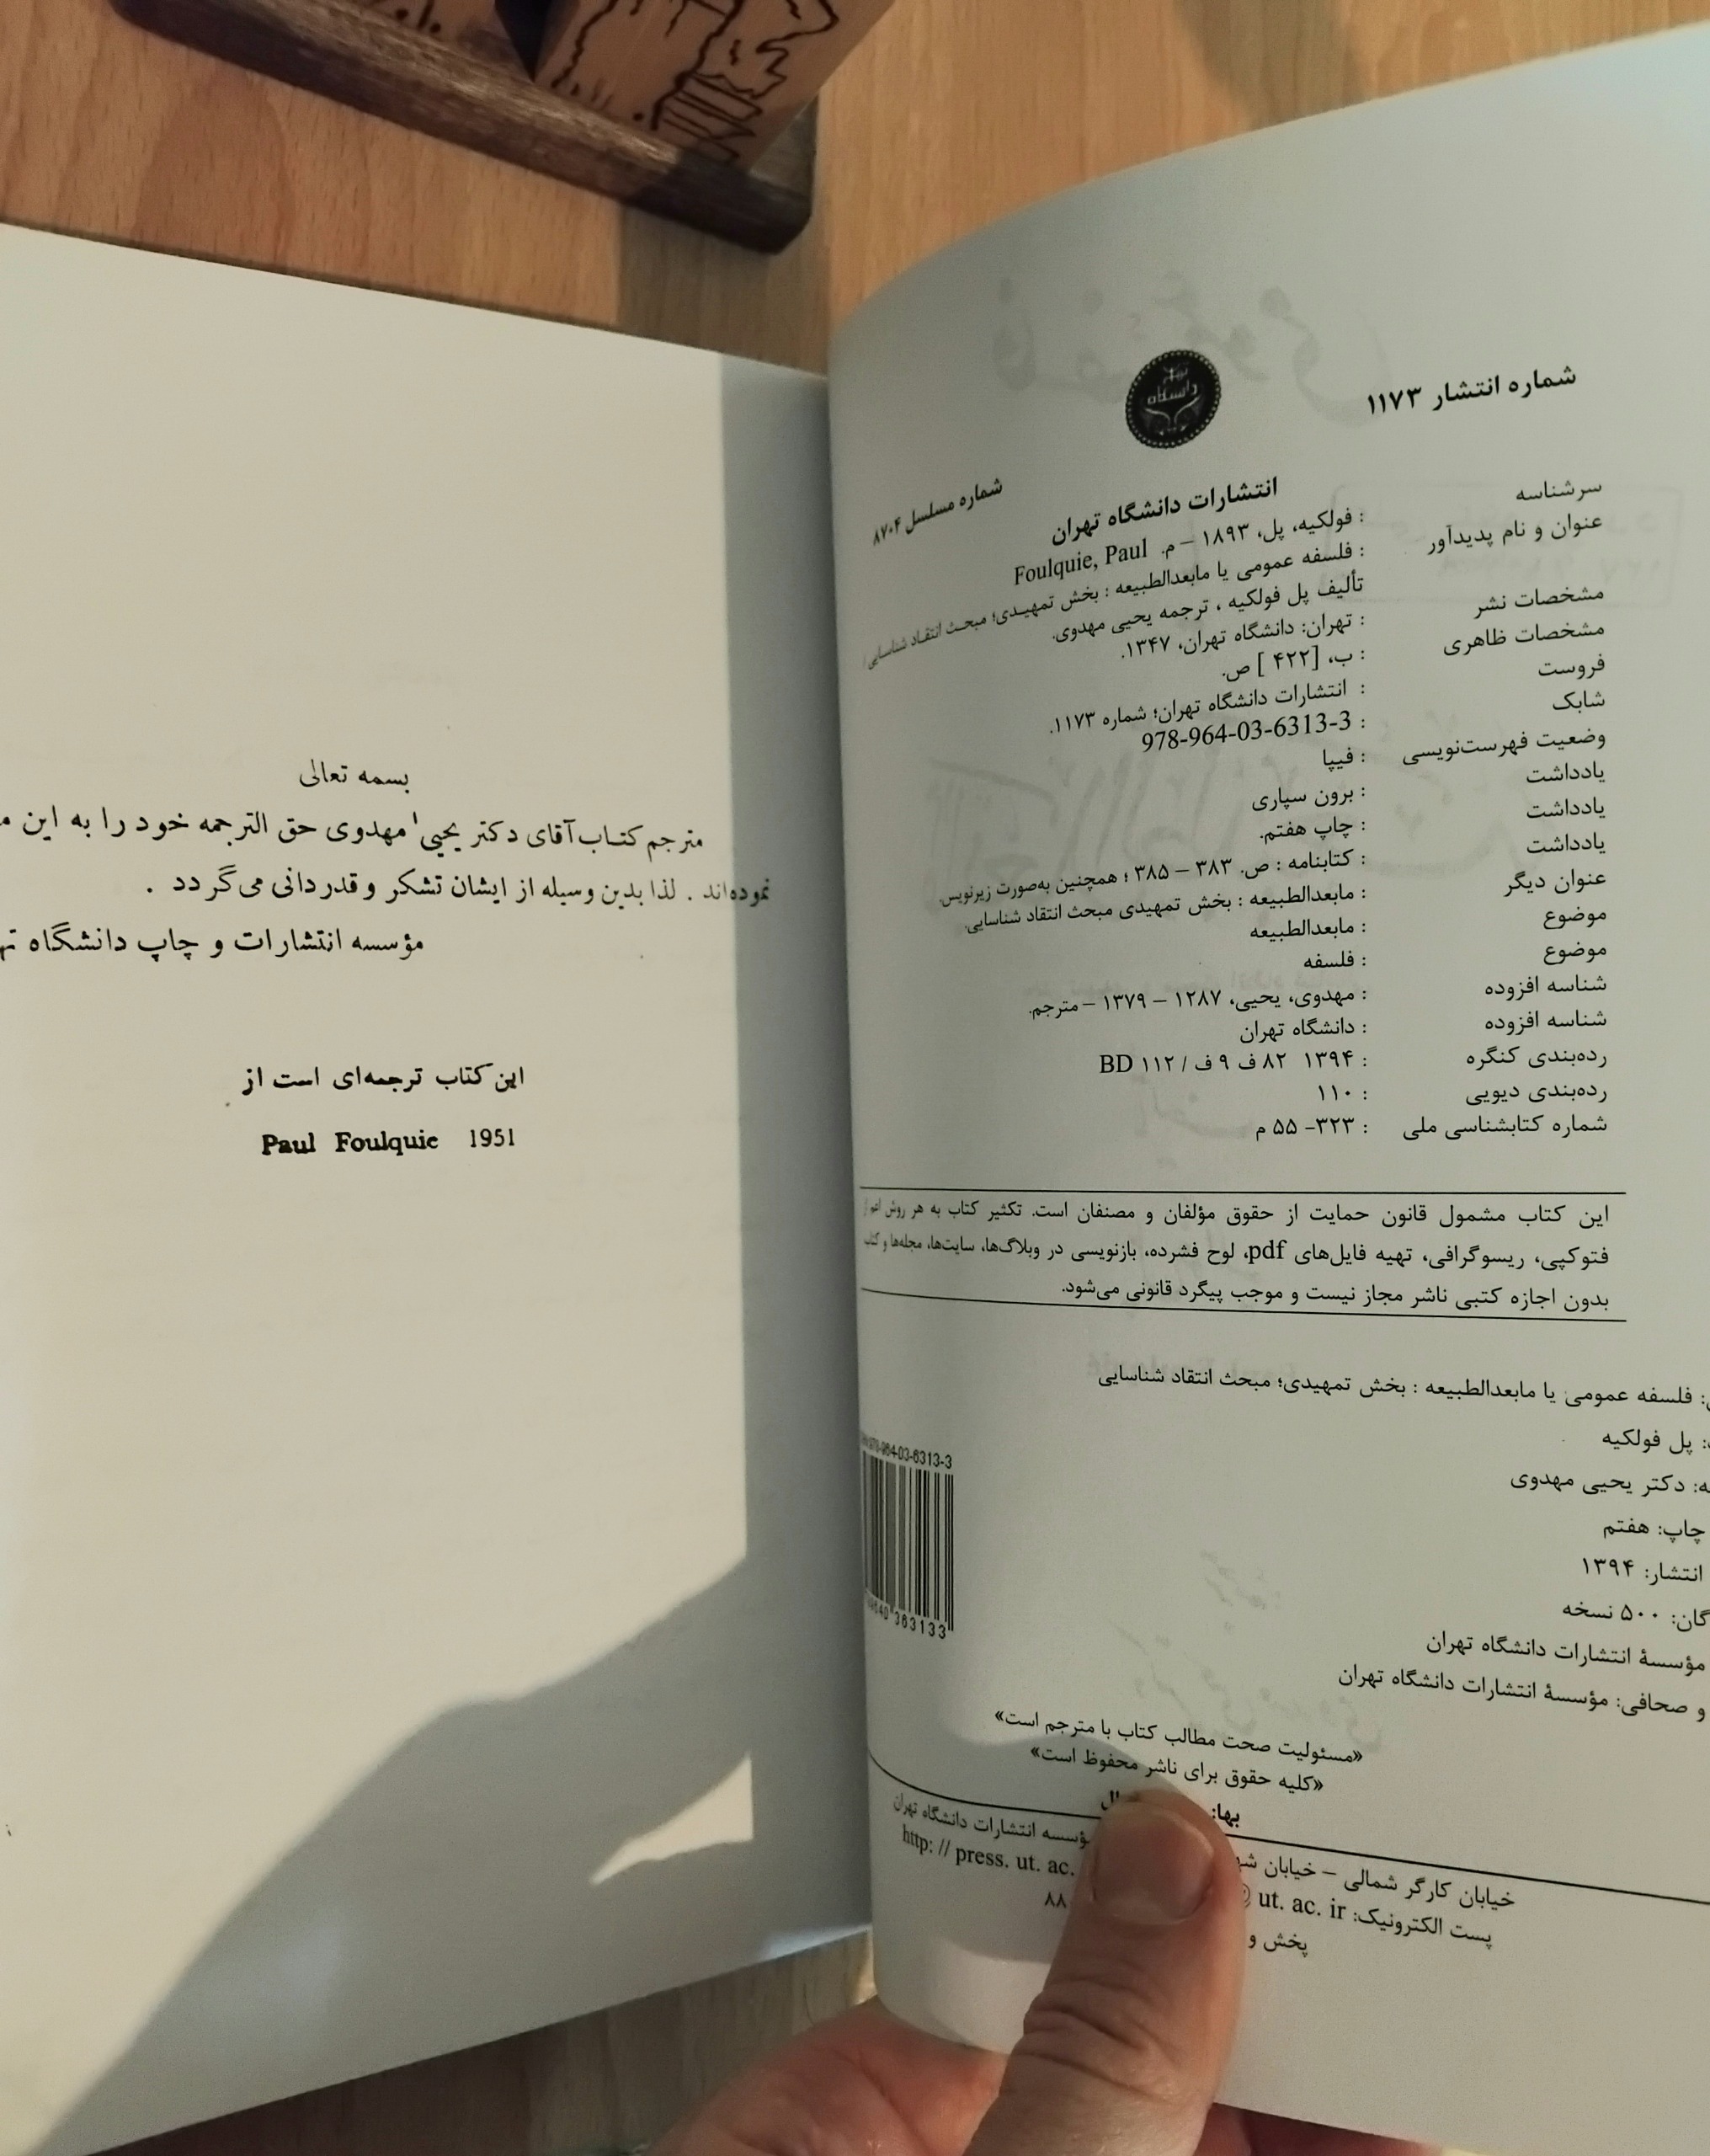 شماره انتشار ۱۱۷۳
شماره مسلسل ۸۷۰۴
انتشارات دانشگاه تهران
سرشناسه : فولکیه، پل، ۱۸۹۳ – م. Foulquie, Paul
عنوان و نام پدیدآور : فلسفه عمومی یا مابعدالطبیعه : بخش تمهیدی؛ مبحث انتقاد شناسایی /
تألیف پل فولکیه ، ترجمه یحیی مهدوی.
مشخصات نشر : تهران: دانشگاه تهران، ۱۳۴۷.
مشخصات ظاهری : ب، [۴۲۲ ] ص.
فروست : انتشارات دانشگاه تهران؛ شماره ۱۱۷۳.
شابک : 978-964-03-6313-3
وضعیت فهرست‌نویسی : فیپا
یادداشت : برون سپاری
یادداشت : چاپ هفتم.
یادداشت : کتابنامه : ص. ۳۸۳ – ۳۸۵ ؛ همچنین به‌صورت زیرنویس.
عنوان دیگر : مابعدالطبیعه : بخش تمهیدی مبحث انتقاد شناسایی.
موضوع : مابعدالطبیعه
موضوع : فلسفه
شناسه افزوده : مهدوی، یحیی، ۱۲۸۷ – ۱۳۷۹ – مترجم.
شناسه افزوده : دانشگاه تهران
رده‌بندی کنگره : ۱۳۹۴ ۸۲ ف ۹ ف / ۱۱۲ BD
رده‌بندی دیویی : ۱۱۰
شماره کتابشناسی ملی : ۳۲۳- ۵۵ م
این کتاب مشمول قانون حمایت از حقوق مؤلفان و مصنفان است. تکثیر کتاب به هر روش اعم از
فتوکپی، ریسوگرافی، تهیه فایل‌های pdf، لوح فشرده، بازنویسی در وبلاگ‌ها، سایت‌ها، مجله‌ها و کتاب
بدون اجازه کتبی ناشر مجاز نیست و موجب پیگرد قانونی می‌شود.
: فلسفه عمومی یا مابعدالطبیعه : بخش تمهیدی؛ مبحث انتقاد شناسایی
: پل فولکیه
: دکتر یحیی مهدوی
چاپ: هفتم
انتشار: ۱۳۹۴
: ۵۰۰ نسخه
مؤسسهٔ انتشارات دانشگاه تهران
و صحافی: مؤسسهٔ انتشارات دانشگاه تهران
978-964-03-6313-3
363133
«مسئولیت صحت مطالب کتاب با مترجم است»
«کلیه حقوق برای ناشر محفوظ است»
بها:
خیابان کارگر شمالی – خیابان مؤسسه انتشارات دانشگاه تهران
پست الکترونیک: @ ut. ac. ir http: // press. ut. ac.
پخش و ۸۸
بسمه تعالی
مترجم کتاب آقای دکتر یحیی مهدوی حق الترجمه خود را به این
نموده‌اند . لذا بدین وسیله از ایشان تشکر و قدردانی می‌گردد .
مؤسسه انتشارات و چاپ دانشگاه
این کتاب ترجمه‌ای است از
Paul Foulquie 1951